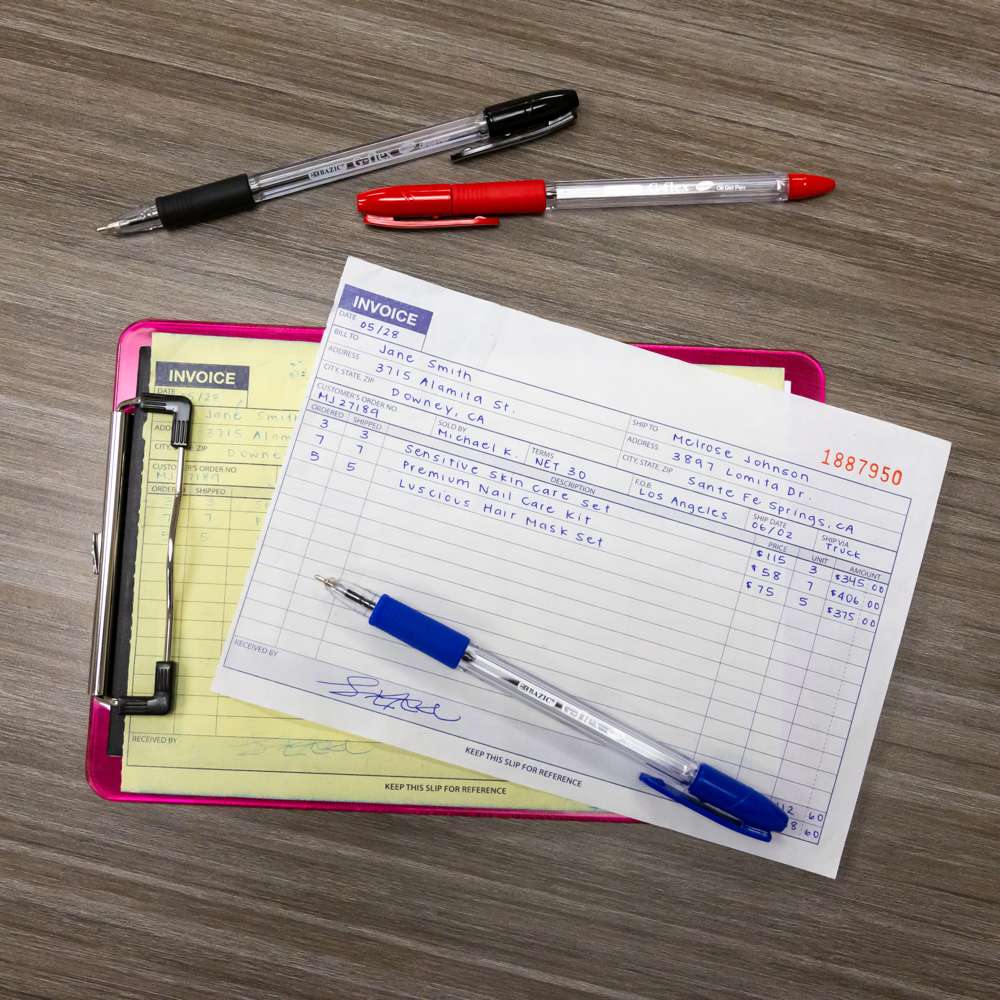 BAZIC G-flex
G-flex Oil Gel Pen
INVOICE
DATE 05/28
BILL TO Jane Smith
ADDRESS 3715 Alamita St.
CITY, STATE, ZIP Downey, CA
SHIP TO Melrose Johnson
ADDRESS 3897 Lomita Dr.
CITY, STATE, ZIP Sante Fe Springs, CA
1887950
CUSTOMER'S ORDER NO. MJ27189
SOLD BY Michael K.
TERMS NET 30
F.O.B. Los Angeles
SHIP DATE 06/02
SHIP VIA Truck
ORDERED SHIPPED DESCRIPTION PRICE UNIT AMOUNT
3 3 Sensitive Skin Care Set $115 3 $345 00
7 7 Premium Nail Care Kit $58 7 $406 00
5 5 Luscious Hair Mask Set $75 5 $375 00
BAZIC
60
60
RECEIVED BY
KEEP THIS SLIP FOR REFERENCE
INVOICE
DATE
Jane Smith
3715 Alam
CITY, STATE, ZIP Downe
CUSTOMER'S ORDER NO.
MJ27189
ORDERED SHIPPED
7
5 5
RECEIVED BY
KEEP THIS SLIP FOR REFERENCE